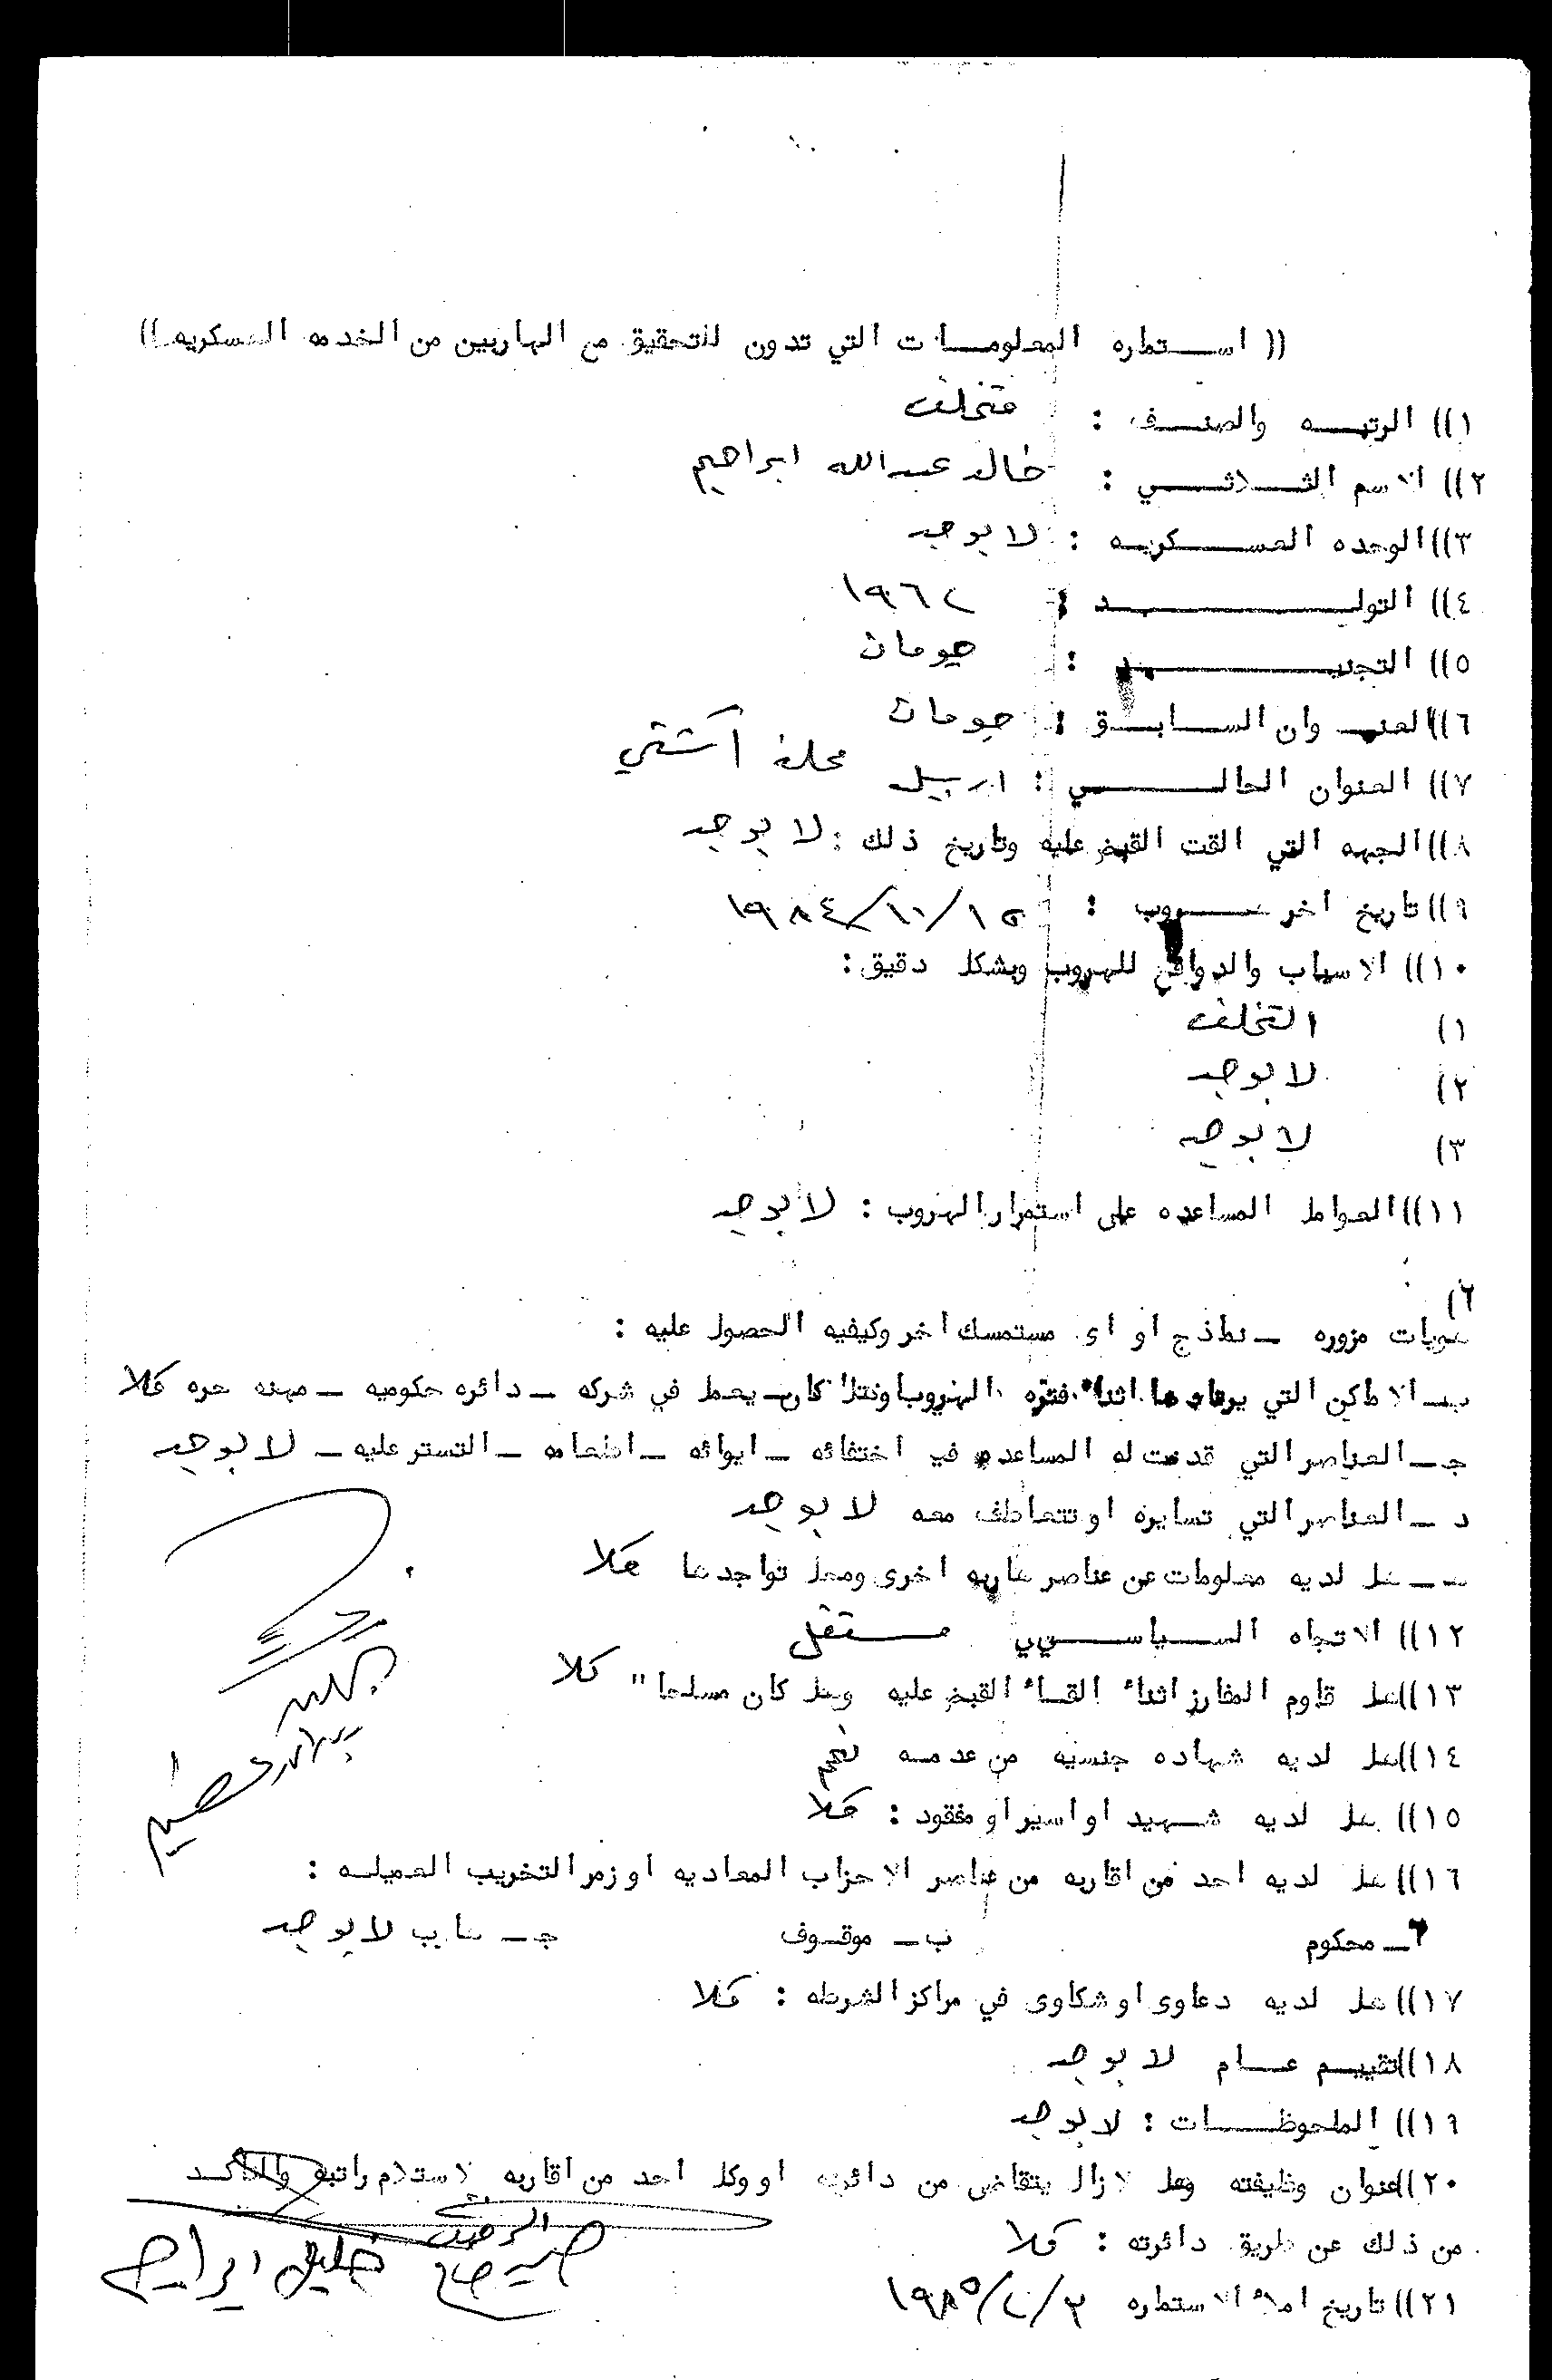 (( استماره المعلومات التي تدون للتحقيق مع الهاربين من الخدمه العسكريه ))
١)) الرتبه والصنف : متخلف
٢)) الاسم الثلاثي : خالد عبدالله ابراهيم
٣)) الوحده العسكريه : لا يوجد
٤)) التولد : ١٩٦٢
٥)) التجنيد : جومان
٦)) العنوان السابق : جومان
٧)) العنوان الحالي : اربيل محلة آشتي
٨)) الجهه التي القت القبض عليه وتاريخ ذلك : لا يوجد
٩)) تاريخ اخر هروب : ١٥/١٠/١٩٨٤
١٠)) الاسباب والدوافع للهروب وبشكل دقيق :
١) التخلف
٢) لا يوجد
٣) لا يوجد
١١)) العوامل المساعده على استمرار الهروب : لا يوجد
٢)
هويات مزوره ــ نماذج او اى مستمسك اخر وكيفيه الحصول عليه :
بــ الاماكن التي يرتادها اثناء فتره الهروب كان يعمل في شركه ــ دائره حكوميه ــ مهنه حره كلا
جــ العناصر التي قدمت له المساعده في اختفائه ــ ايوائه ــ اطعامه ــ التستر عليه ــ لا يوجد
د ــ العناصر التي تسايره او تتعاطف معه لا يوجد
هــ ــ هل لديه معلومات عن عناصر هاربه اخرى ومحل تواجدها كلا
١٢)) الاتجاه السياسي مستقل
١٣)) هل قاوم المفارز اثناء القاء القبض عليه وهل كان مسلحا" كلا
١٤)) هل لديه شهاده جنسيه من عدمه نعم
١٥)) هل لديه شهيد او اسير او مفقود : كلا
١٦)) هل لديه احد من اقاربه من عناصر الاحزاب المعاديه او زمر التخريب العميله :
أــ محكوم بــ موقوف جــ هارب لا يوجد
١٧)) هل لديه دعاوى او شكاوى في مراكز الشرطه : كلا
١٨)) تقييم عام لا يوجد
١٩)) الملحوظات : لا يوجد
٢٠)) عنوان وظيفته وهل لازال يتقاضى من دائرته او وكل احد من اقاربه لاستلام راتبه والتأكد
من ذلك عن طريق دائرته : كلا
خليل ابراهيم
٢١)) تاريخ املاء الاستماره ٢/٢/١٩٨٥